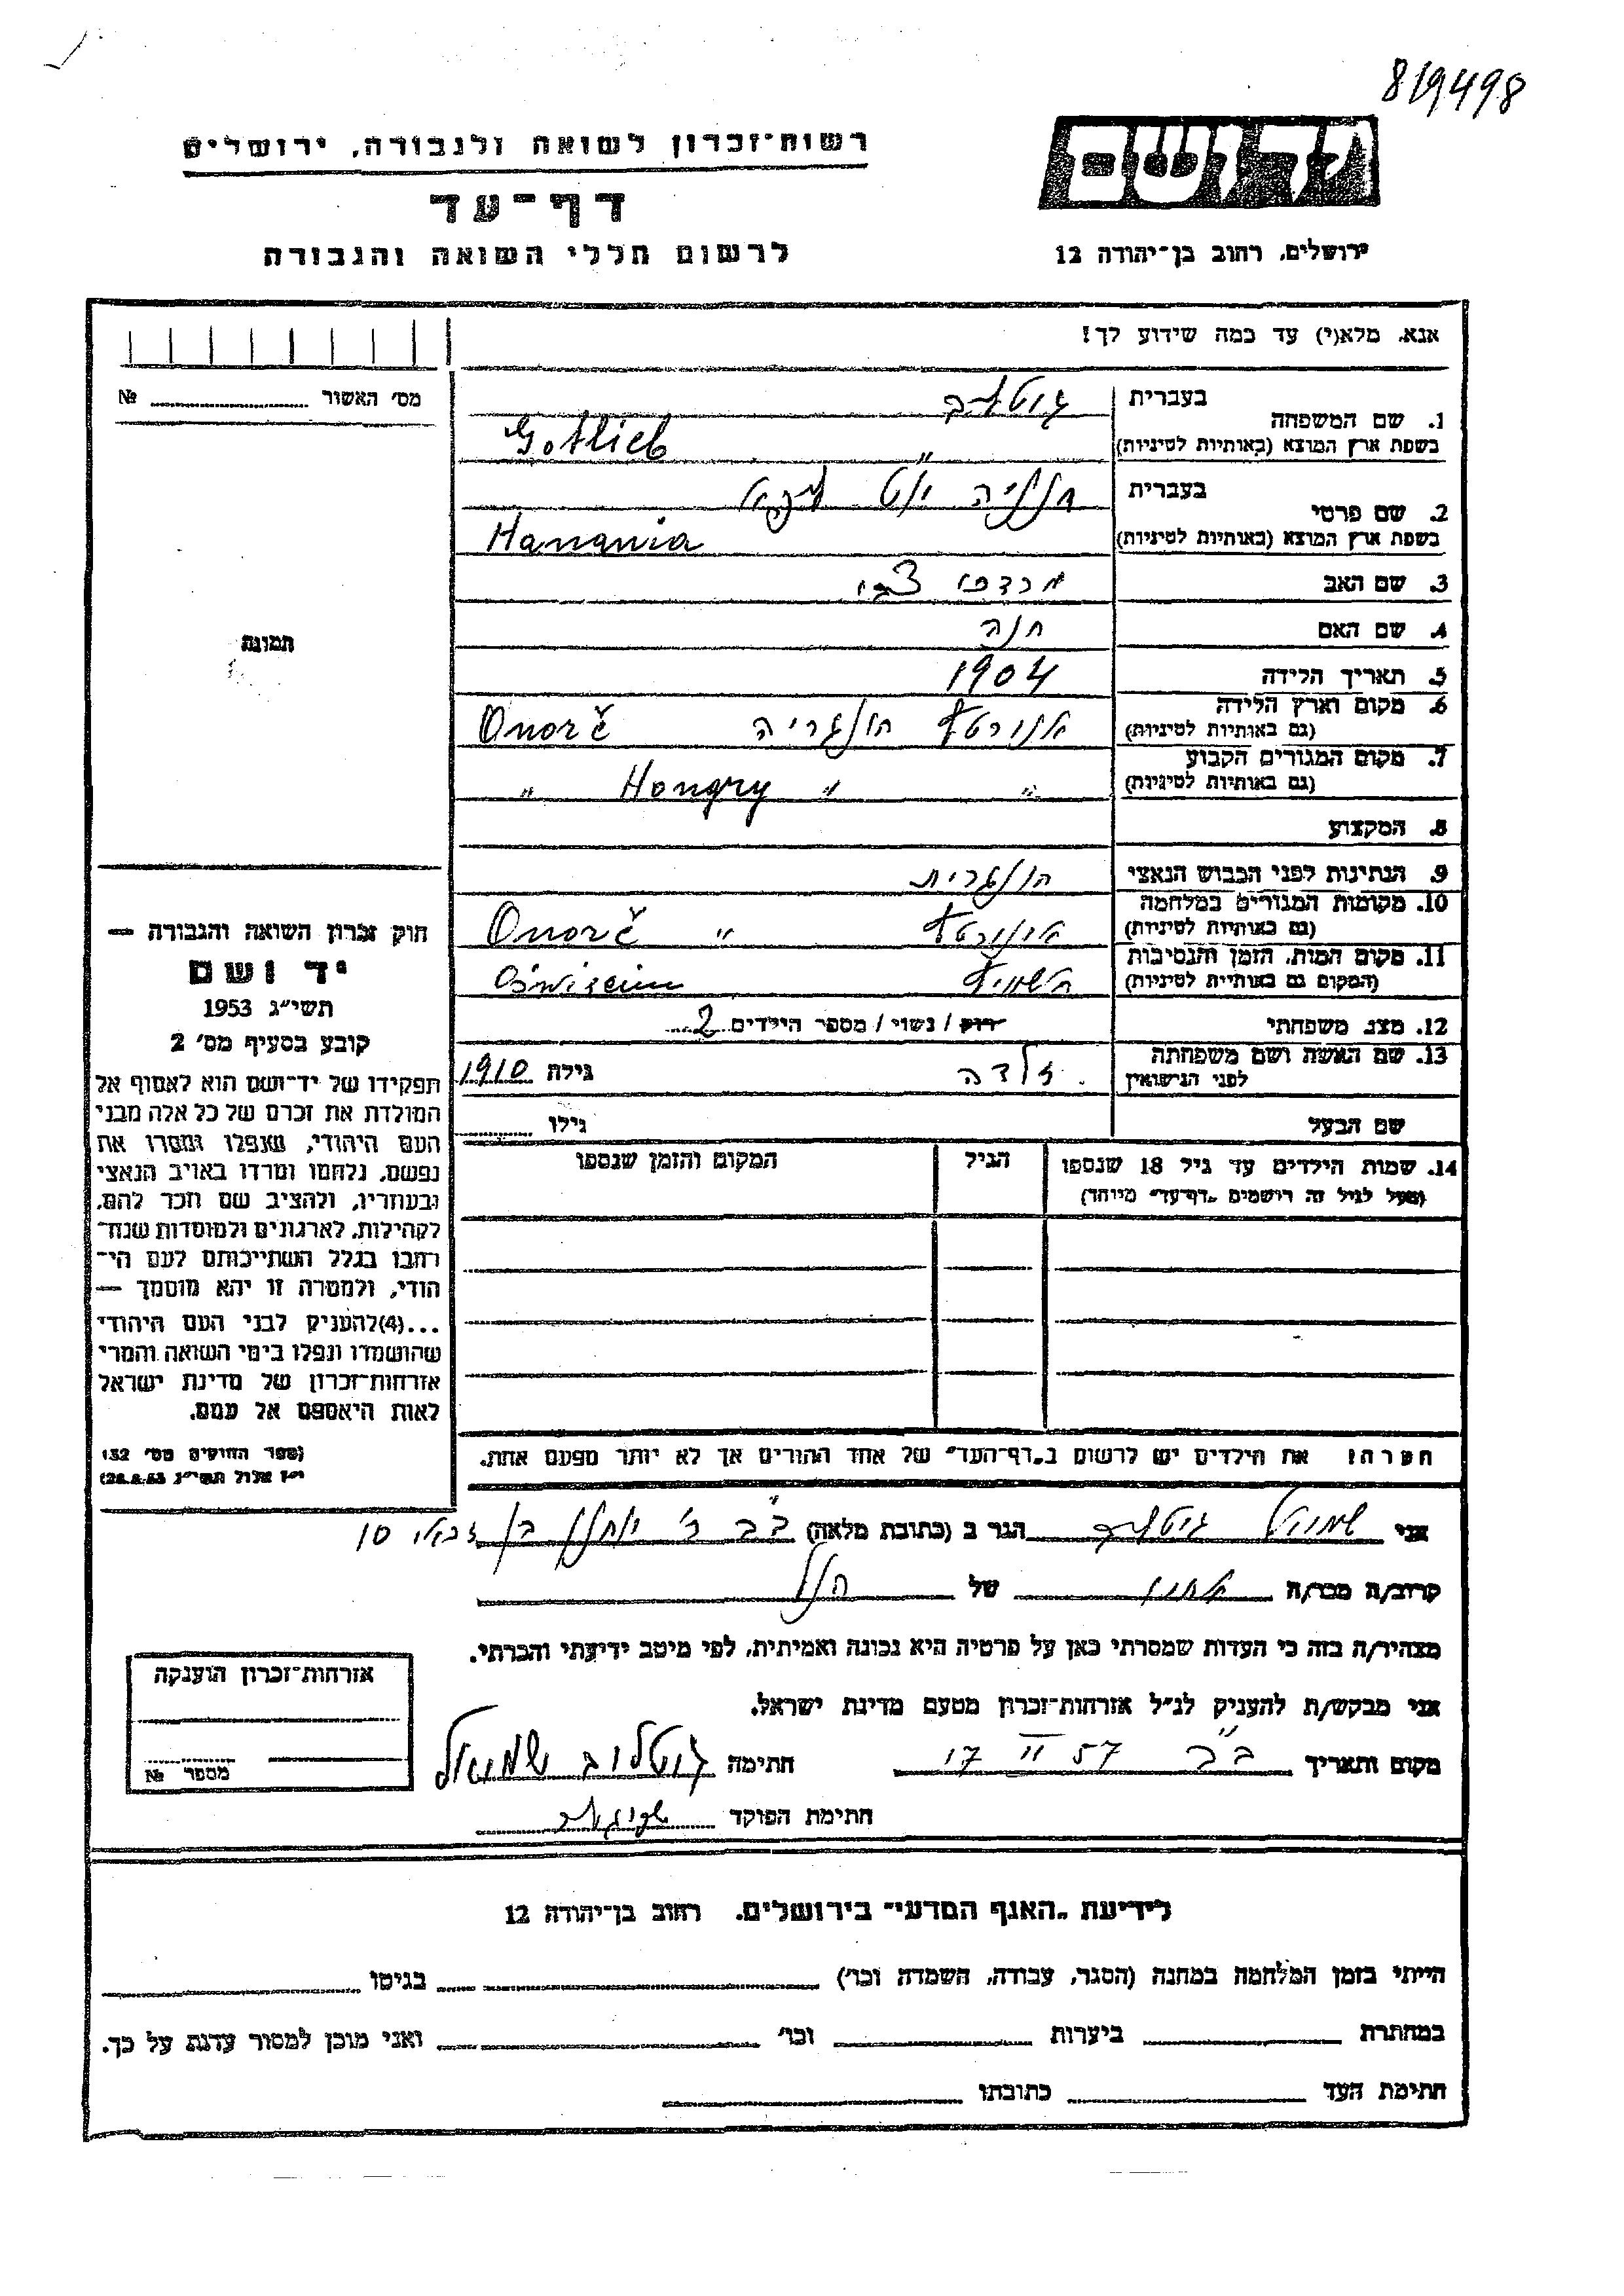 8/9498
יד ושם
רשות־זכרון לשואה ולגבורה, ירושלים
דף־עד
לרשום חללי השואה והגבורה
ירושלים, רחוב בן־יהודה 12
אנא, מלא(י) עד כמה שידוע לך!
מס' האשור № 
תמונה
1. שם המשפחה בעברית גוטליב
בשפת ארץ המוצא (באותיות לטיניות) " Gotlieb
2. שם פרטי בעברית חנניה יו"ט
בשפת ארץ המוצא (באותיות לטיניות) Hanania
3. שם האב מרדכי צבי
4. שם האם חנה
5. תאריך הלידה 1904
6. מקום וארץ הלידה (גם באותיות לטיניות) הונגריה Onorě
7. מקום המגורים הקבוע (גם באותיות לטיניות) " " Hongry "
8. המקצוע
9. הנתינות לפני הכבוש הנאצי הונגרית
10. מקומות המגורים במלחמה (גם באותיות לטיניות) " Onorě
11. מקום המות, הזמן והנסיבות (המקום גם באותיות לטיניות) אושויץ Oświecim
12. מצב משפחתי רוק / נשוי / מספר הילדים 2
13. שם האשה ושם משפחתה לפני הנישואין זלדה גילה 1910
שם הבעל גילו
14. שמות הילדים עד גיל 18 שנספו הגיל המקום והזמן שנספו
(מעל לגיל זה רושמים "דף־עד" מיוחד)
הערה: את הילדים יש לרשום ב"דף־העד" של אחד ההורים אך לא יותר מפעם אחת.
חוק זכרון השואה והגבורה —
יד ושם
תשי"ג 1953
קובע בסעיף מס' 2
תפקידו של יד־ושם הוא לאסוף אל
המולדת את זכרם של כל אלה מבני
העם היהודי, שנפלו ומסרו את
נפשם, נלחמו ומרדו באויב הנאצי
ובעוזריו, ולהציב שם וזכר להם,
לקהילות, לארגונים ולמוסדות שנח־
רבו בגלל השתייכותם לעם הי־
הודי, ולמטרה זו יהא מוסמך —
...(4) להעניק לבני העם היהודי
שהושמדו ונפלו בימי השואה והמרי
אזרחות־זכרון של מדינת ישראל
לאות היאספם אל עמם.
(ספר החוקים מס' 132
י"ז אלול תשי"ג 28.8.53)
אני שמואל גוטליב הגר ב (כתובת מלאה) ב"ב ר' יונתן בן 10
קרוב/ה מכר/ה אחיו של הנ"ל
מצהיר/ה בזה כי העדות שמסרתי כאן על פרטיה היא נכונה ואמיתית, לפי מיטב ידיעתי והכרתי.
אני מבקש/ת להעניק לנ"ל אזרחות־זכרון מטעם מדינת ישראל.
מקום ותאריך ב"ב 17 II 57 חתימה גוטליב שמואל
חתימת הפוקד
אזרחות־זכרון הוענקה
מספר №
לידיעת "האגף המדעי" בירושלים, רחוב בן־יהודה 12
הייתי בזמן המלחמה במחנה (הסגר, עבודה, השמדה וכו') בגיטו
במחתרת ביערות וכו' ואני מוכן למסור עדות על כך.
חתימת העד כתובתו